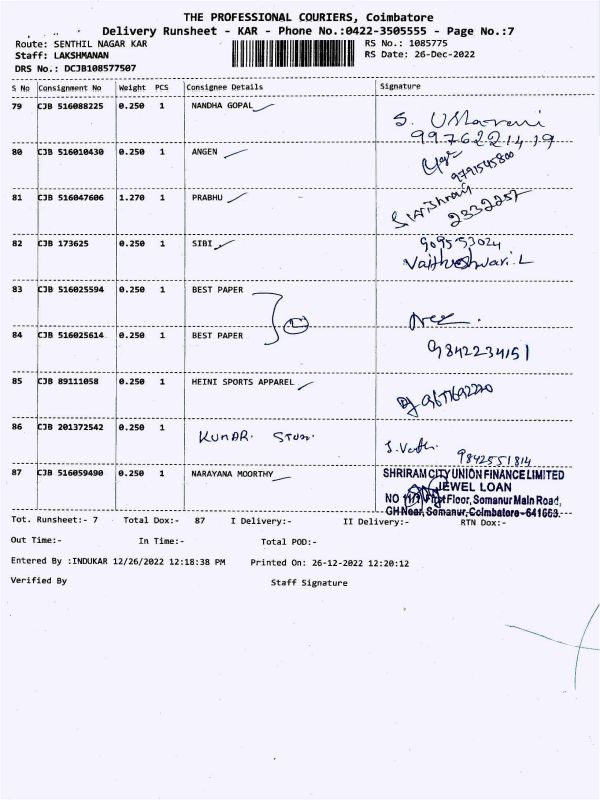 THE PROFESSIONAL COURIERS, Coimbatore
Delivery Runsheet - KAR - Phone No.:0422-3505555 - Page No.:7
Route: SENTHIL NAGAR KAR RS No.: 1085775
Staff: LAKSHMANAN RS Date: 26-Dec-2022
DRS No.: DCJB108577507
S No Consignment No Weight PCS Consignee Details Signature
79 CJB 516088225 0.250 1 NANDHA GOPAL
S.
9976221419
80 CJB 516010430 0.250 1 ANGEN
9791545800
81 CJB 516047606 1.270 1 PRABHU
2332257
82 CJB 173625 0.250 1 SIBI
Vaitheshwari. L
83 CJB 516025594 0.250 1 BEST PAPER
84 CJB 516025614 0.250 1 BEST PAPER
9842234151
85 CJB 89111058 0.250 1 HEINI SPORTS APPAREL
86 CJB 201372542 0.250 1 KUMAR.
9842551814
87 CJB 516059490 0.250 1 NARAYANA MOORTHY
SHRIRAM CITY UNION FINANCE LIMITED
JEWEL LOAN
NO First Floor, Somanur Main Road,
GH Near, Somanur, Coimbatore - 641668.
Tot. Runsheet:- 7 Total Dox:- 87 I Delivery:- II Delivery:- RTN Dox:-
Out Time:- In Time:- Total POD:-
Entered By :INDUKAR 12/26/2022 12:18:38 PM Printed On: 26-12-2022 12:20:12
Verified By Staff Signature